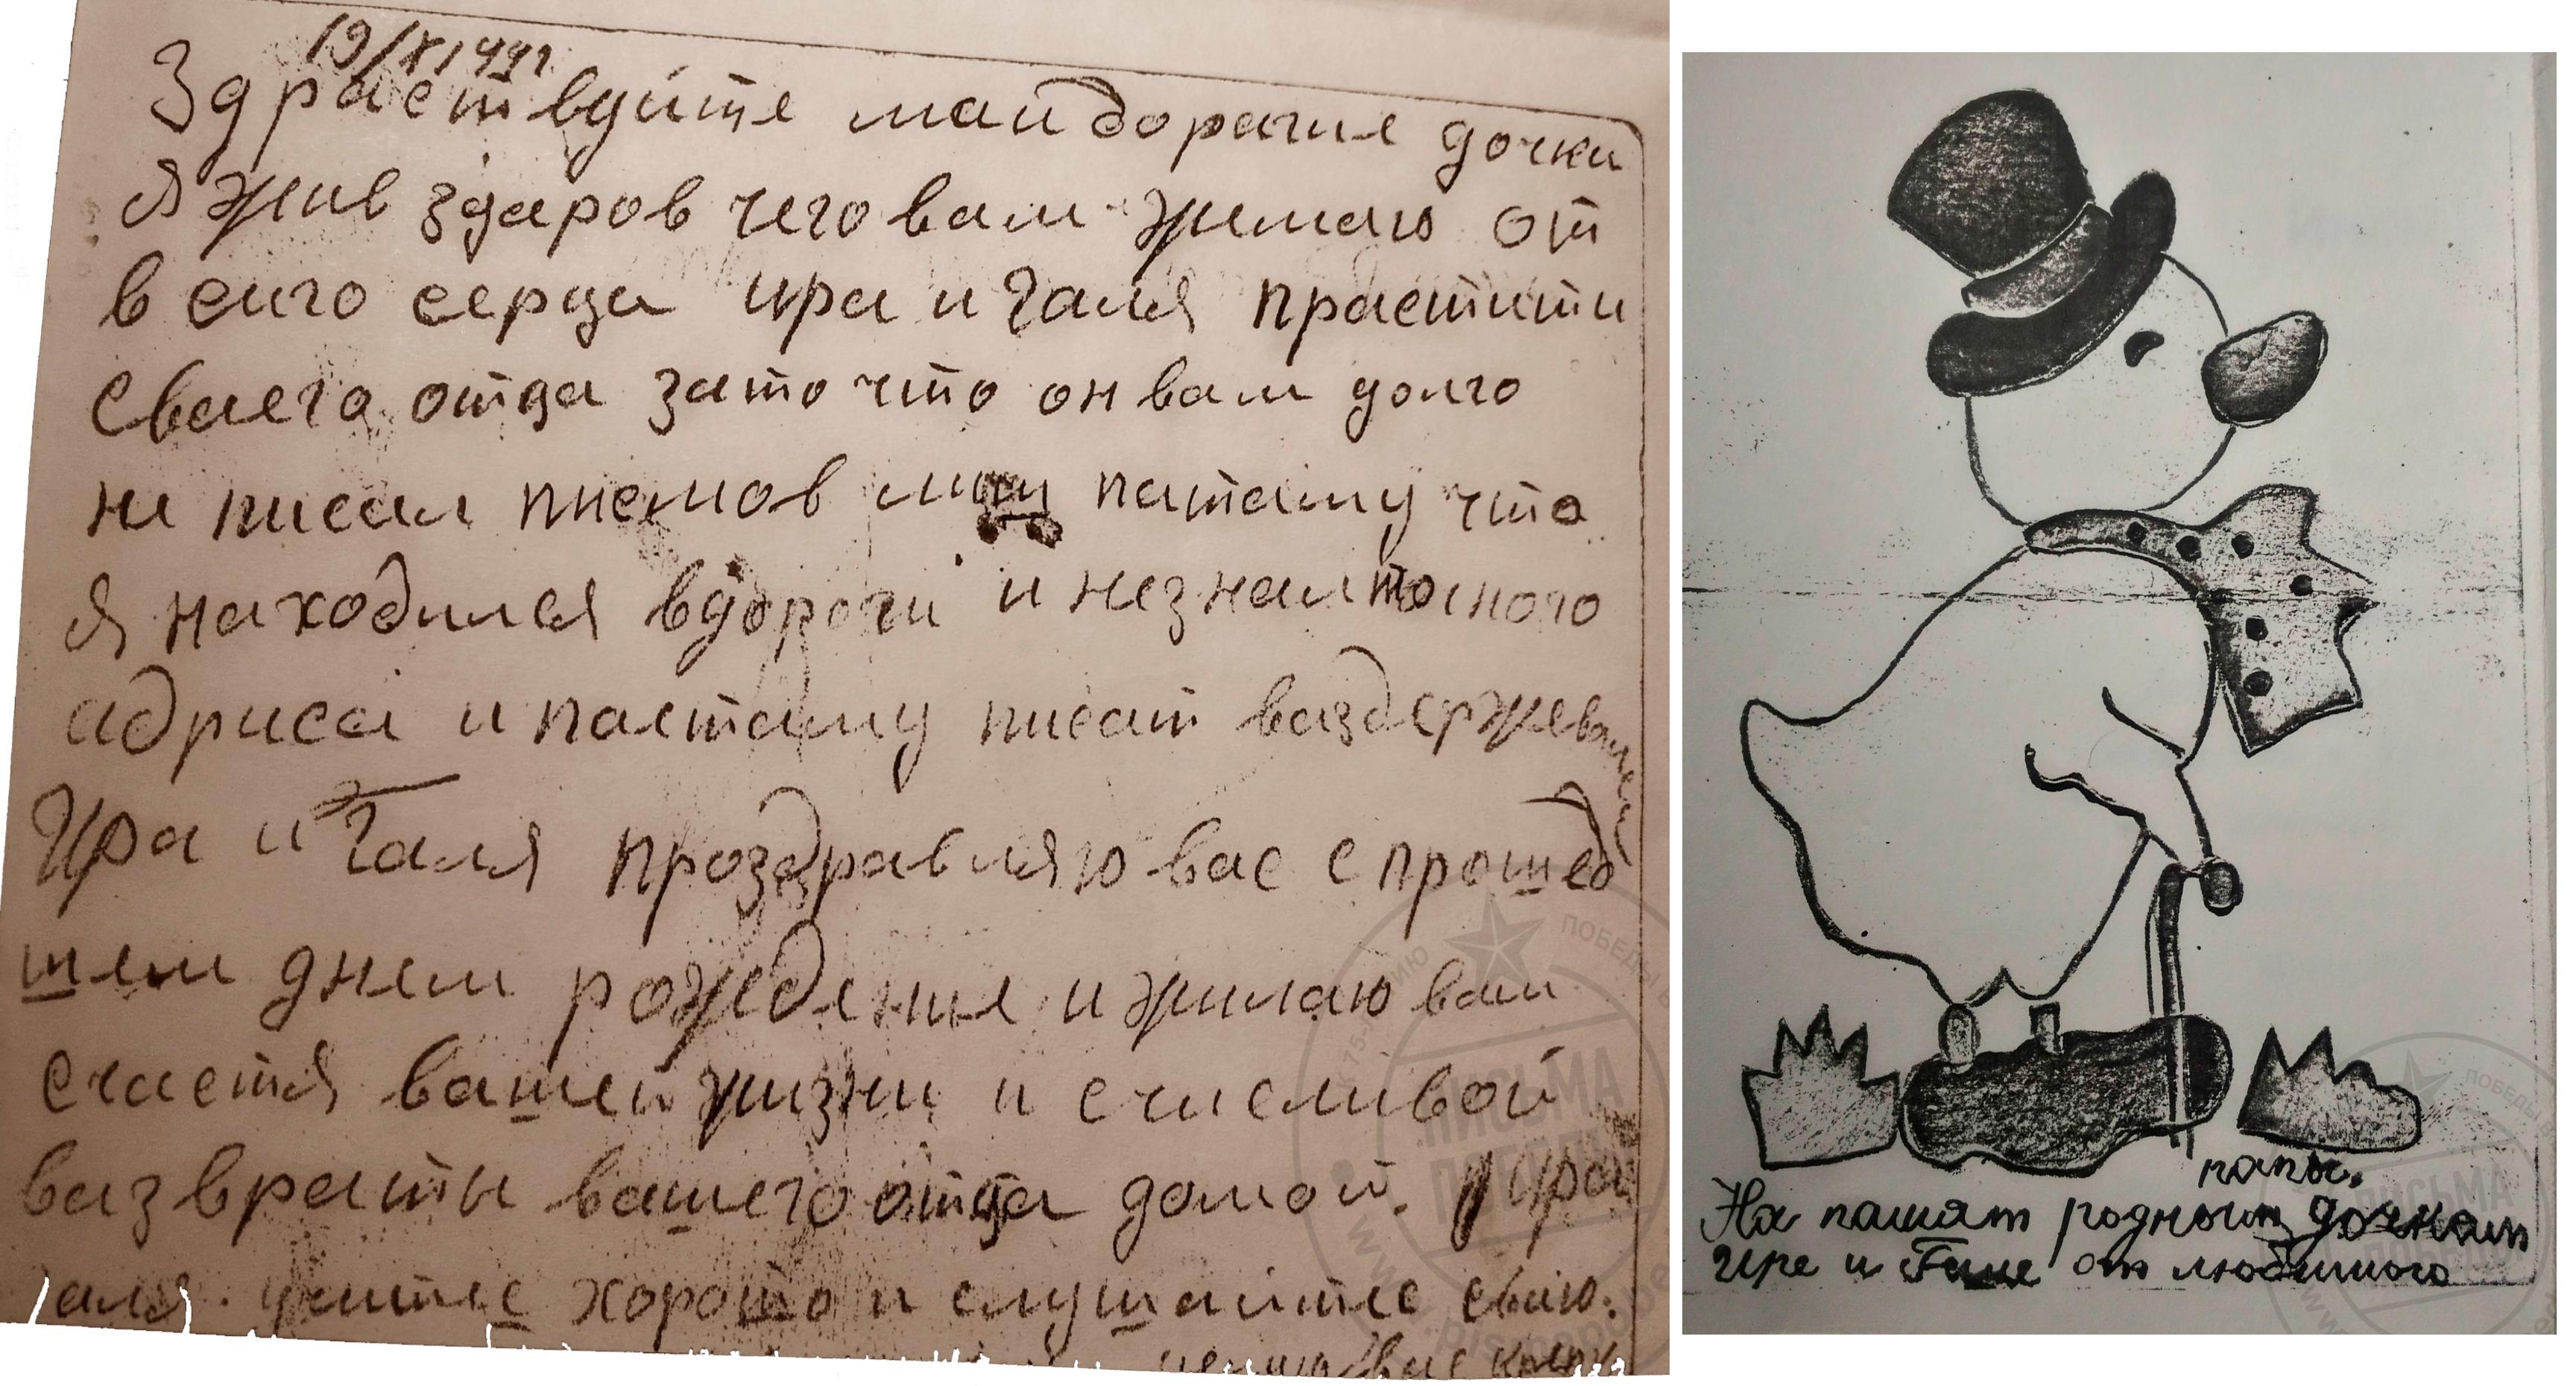 19/XI 44г
Здраствуйте маи дорагие дочки
Я жив здаров чего вам жилаю от
в сиго серца ира и Галя праститити
сваего отца зато что он вам долго
не писал писмов патаму что
я находился вдороги и незнал точного
адриса и паетаму писатваздержевался
Ира и Галя проздравляю вас с прошед
шем днем рождения и жилаю вам
счастя вашей жизни и счисливой
вазвраты вашего отца домой. Ира
аля. учитес хорошо и слушайтес сваю.
вас
папы.
На памят родным дочкам
Ире и Гале от любимого
ПИСЬМА
ПОБЕДЫ